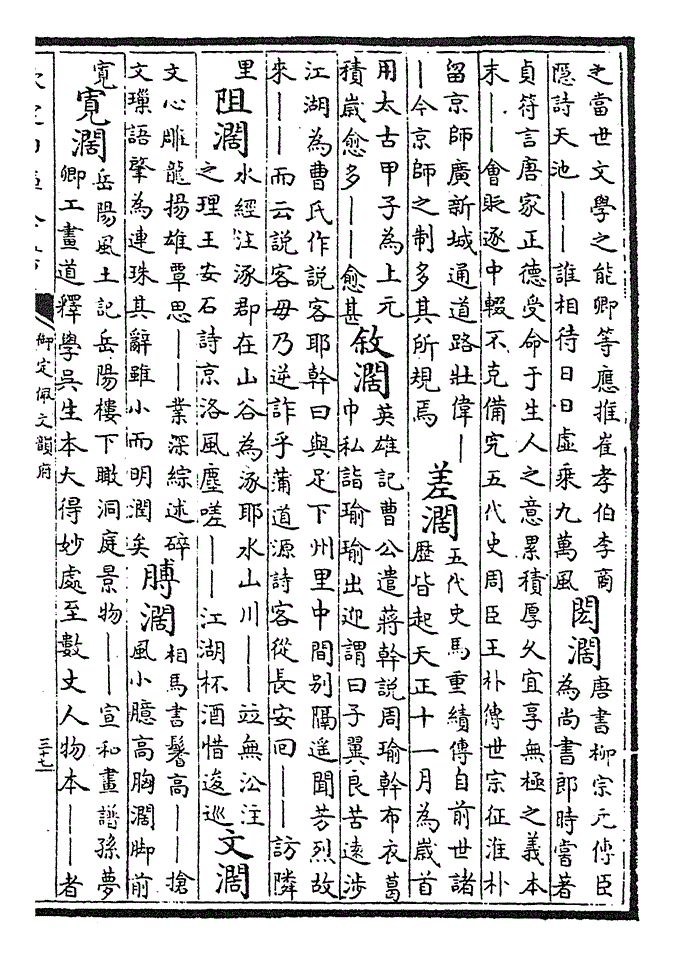 之當世文學之能卿等應推崔孝伯李商
隠詩天池——誰相待日日虛乘九萬風
閎濶
唐書柳宗元傳臣
為尚書郎時嘗著
貞符言唐家正德受命于生人之意累積厚久宜享無極之義本
末——會貶逐中輟不克備究五代史周臣王朴傳世宗征淮朴
留京師廣新城通道路壯偉—
—今京師之制多其所規焉
差濶
五代史馬重績傳自前世諸
歴皆起天正十一月為歲首
用太古甲子為上元
積歲愈多——愈甚
敘濶
英雄記曹公遣蔣幹説周瑜幹布衣葛
巾私詣瑜瑜出迎謂曰子翼良苦遠涉
江湖為曹氏作説客耶幹曰與足下州里中間别隔遥聞芳烈故
來——而云説客毋乃逆詐乎蒲道源詩客從長安囘——訪隣
里
阻濶
水經注涿郡在山谷為涿耶水山川——竝無沿注
之理王安石詩京洛風塵嗟——江湖杯酒惜逡巡
文濶
文心雕龍揚雄覃思——業深綜述碎
文璅語肇為連珠其辭雖小而明潤矣
膊濶
相馬書鬐高——搶
風小臆高胸濶脚前
寛
寛濶
岳陽風土記岳陽樓下瞰洞庭景物——宣和畫譜孫夢
卿工畫道釋學吳生本大得妙處至數丈人物本——者
御定佩文韻府
三十七